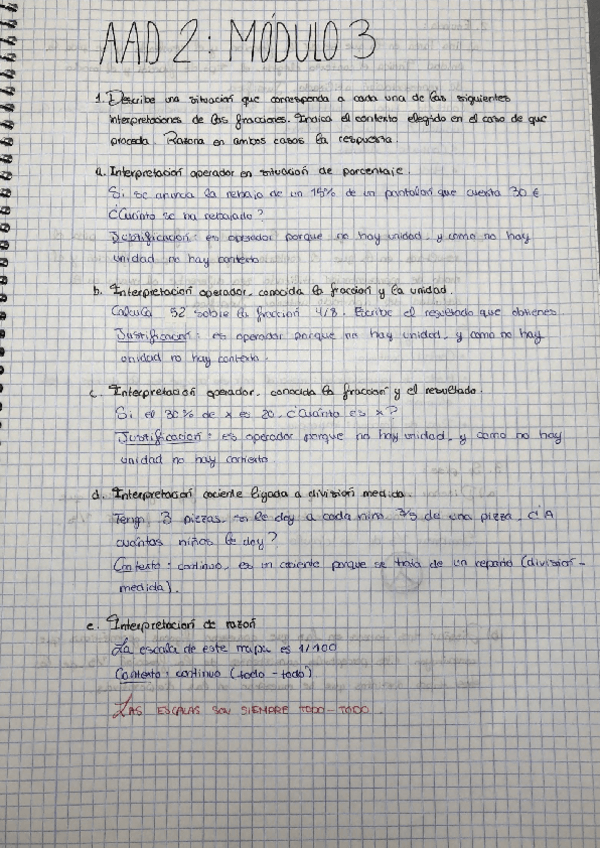 AAD 2: MÓDULO 3
1. Describe una situación que corresponda a cada una de las siguientes
interpretaciones de las fracciones. Indica el contexto elegido en el caso de que
proceda. Razona en ambos casos la respuesta.
a. Interpretación operador en situación de porcentaje.
Si se anuncia la rebaja de un 15% de un pantalón que cuesta 30 €
¿Cuánto se ha rebajado?
Justificación: es operador porque no hay unidad, y como no hay
unidad no hay contexto
b. Interpretación operador, conocida la fracción y la unidad.
Calcula 52 sobre la fracción 4/8. Escribe el resultado que obtienes.
Justificación: es operador porque no hay unidad, y como no hay
unidad no hay contexto.
c. Interpretación operador, conocida la fracción y el resultado.
Si el 30% de x es 20, ¿Cuánto es x?
Justificación: es operador porque no hay unidad, y como no hay
unidad no hay contexto
d. Interpretación cociente ligada a división medida.
Tengo 3 pizzas, si le doy a cada niño 3/5 de una pizza, ¿A
cuántos niños le doy?
Contexto: continuo, es un cociente porque se trata de un reparto (división-
medida).
e. Interpretación de razón
La escala de este mapa es 1/100
Contexto: continuo (todo-todo)
LAS ESCALAS SON SIEMPRE TODO-TODO.